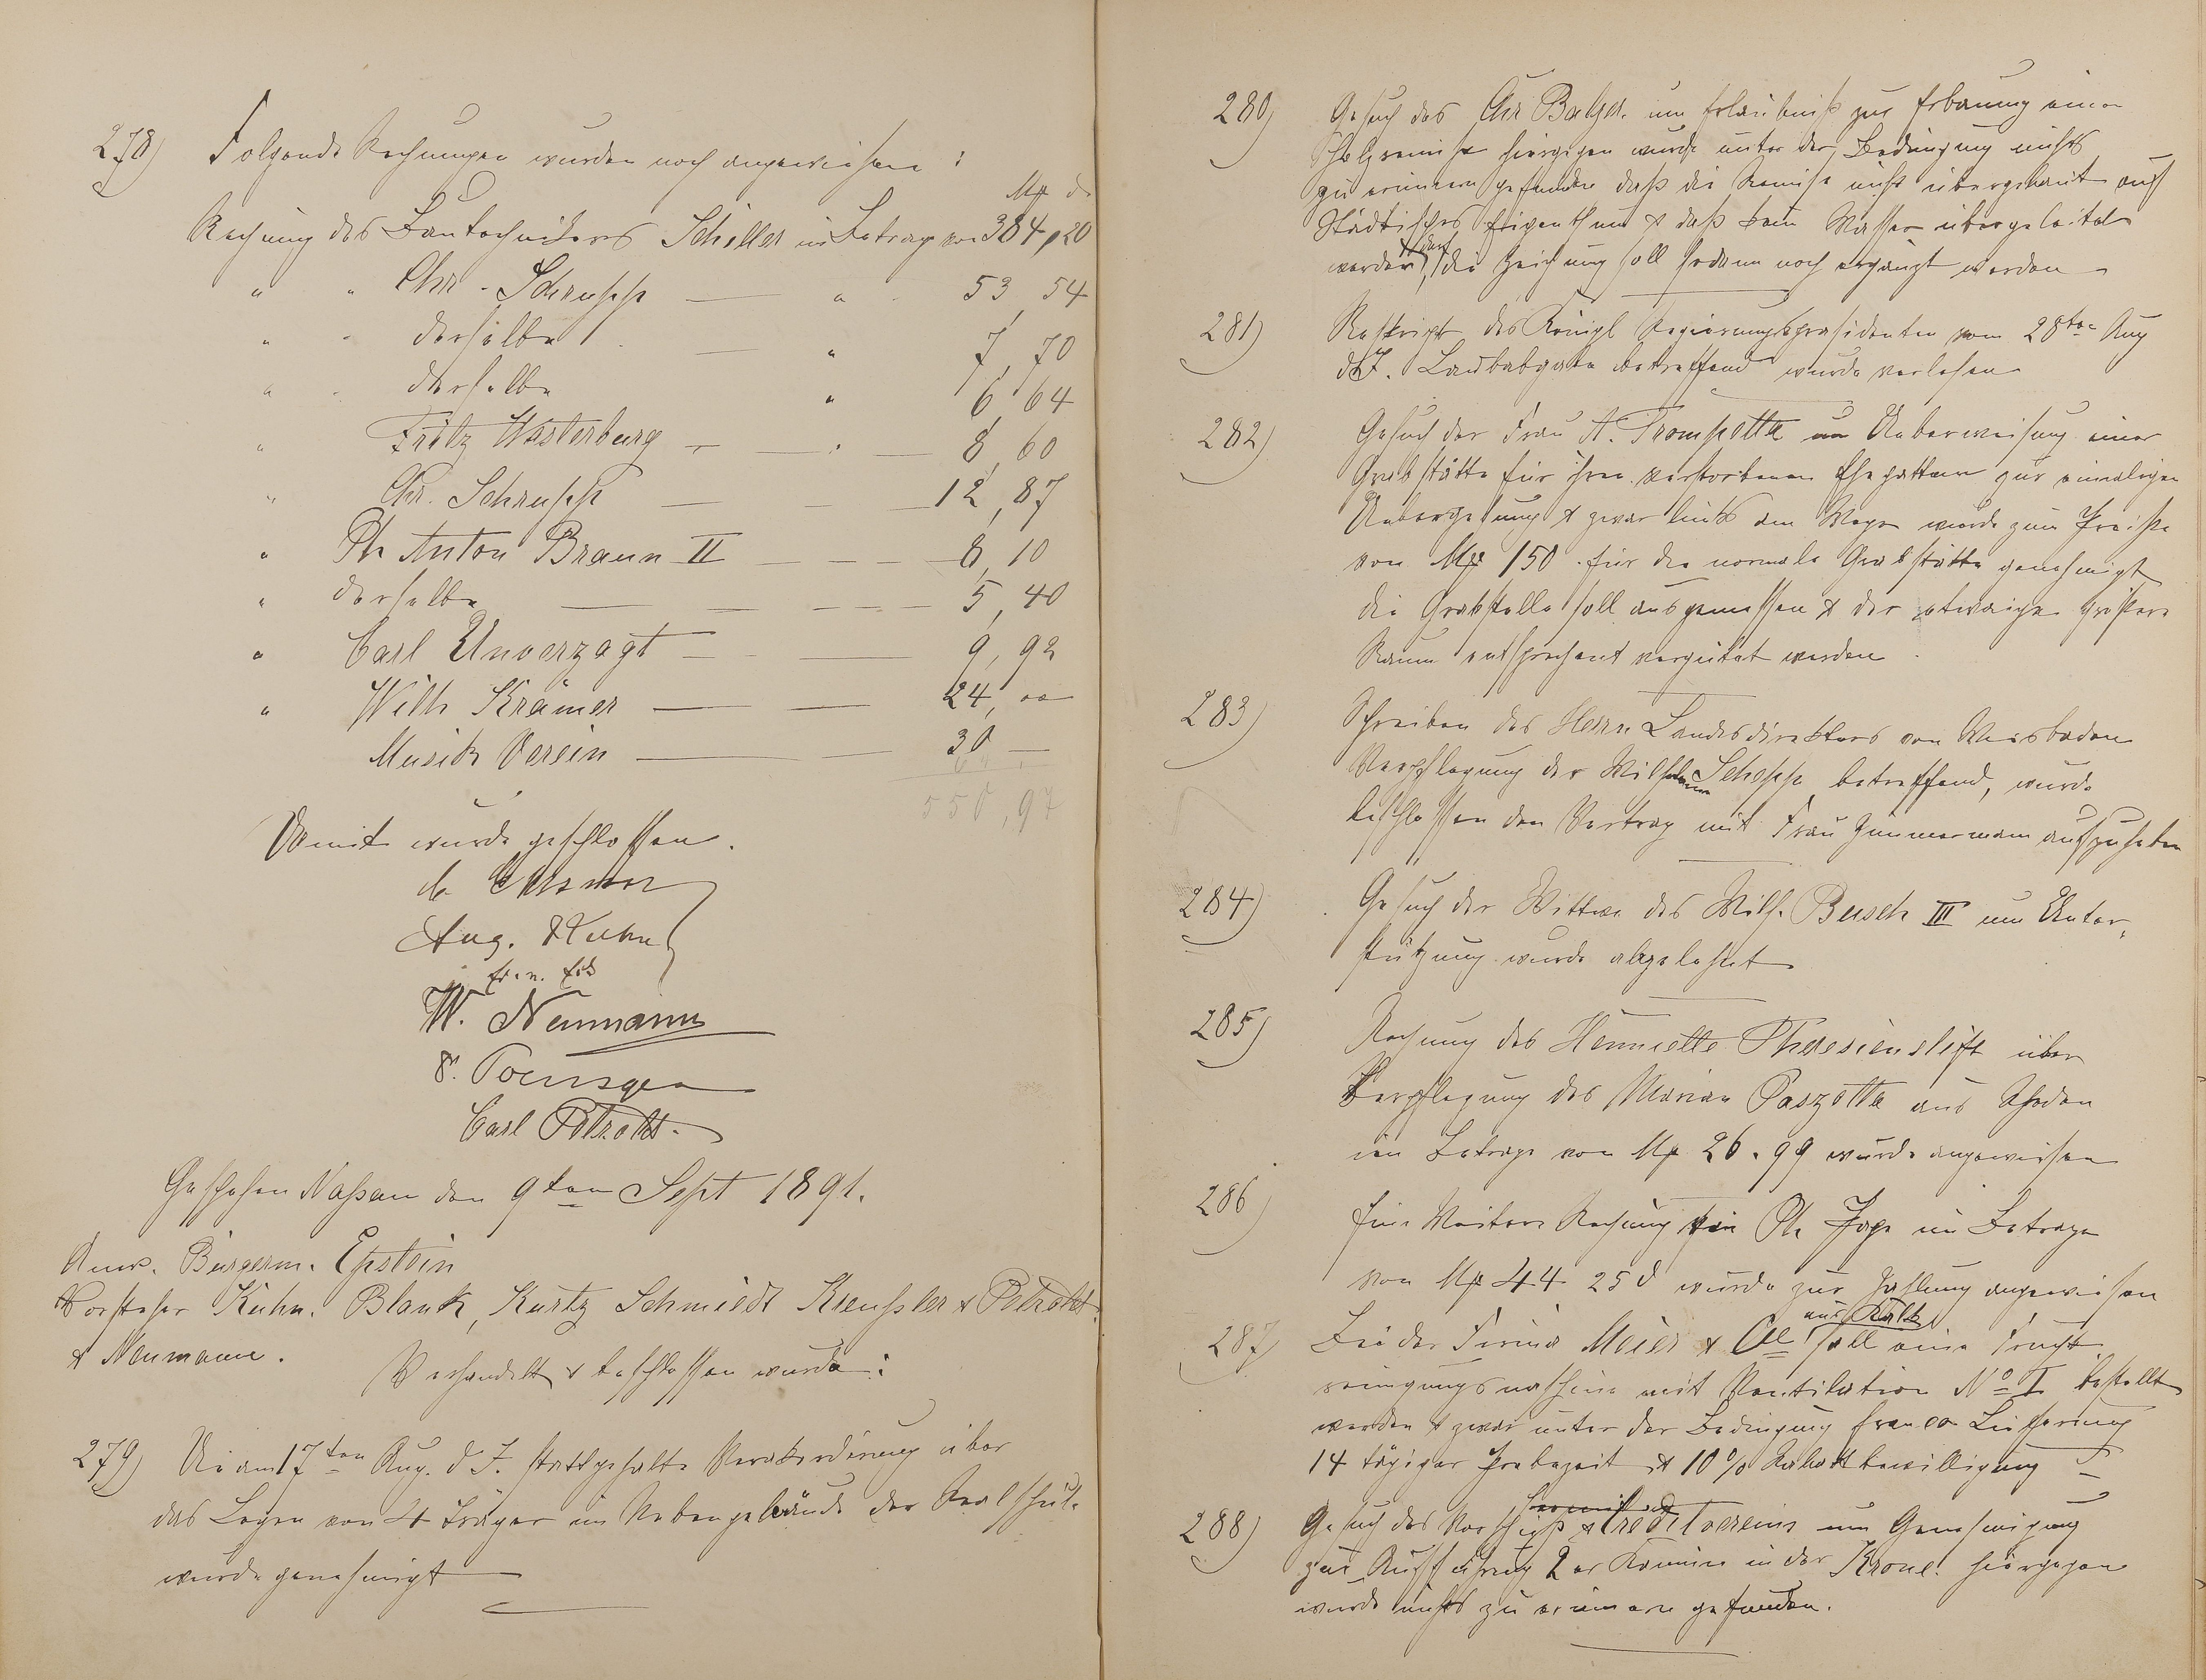 278) Folgende Rechnungen wurden noch angewiesen:
Mk d
Rechnung des Bautechnikers Schiller im Betrage von 384,20
" " Chr. Schrupp — " 53,54
" " derselbe — " 7,70
" " derselbe " 6,64
" Fritz Westerburg — " — 8,60
" Chr. Schrupp — — 12,87
" Ph Anton Braun II — — — 8,10
" derselbe — — — 5,40
" Carl Unverzagt — — 9,92
" Wilh Krämer — — 24,00
Musik Verein — 30 —
550,97
Womit wurde geschlossen.
Aug. Kuhn
W. Neumann
Poensgen
Carl Pötzoldt
Geschehen Nassau den 9ten Sept 1891.
Anw. Bürgerm. Epstein
Vorsteher Kuhn. Blank, Kurtz Schmiedt Kreußler &
& Neumann.
Verhandelt & beschlossen wurde:
279) Die am 17ten Aug. d J. stattgehabte Verakkordirung über
das Legen von 4 Träger im Nebengebäude der Realschule
wurde genehmigt
280) Gesuch des Chr Balzer um Erlaubniß zur Erbauung einer
Holzremise hiergegen wurde unter der Bedingung nichts
zu erinnern gefunden daß die Remise nicht übergebaut auf
Städtisches Eigenthum & daß kein Wasser übergeleitet
werden darf, die Zeichnung soll sodann noch ergänzt werden
281) Reskript des Königl Regierungspräsidenten vom 28ten Aug
d J. Laubabgabe betreffend wurde verlesen
282) Gesuch der Frau A. Trompetta um Ueberweisung einer
Grabstätte für ihren verstorbenen Ehegatten zur einmaligen
& zwar links am Wege wurde zum Preise
von Mk 150 für die normale Grabstätte genehmigt
die Grabstelle soll ausgemessen & der etwaige größere
Raum entsprechent vergütet werden.
283) Schreiben des Herrn Landesdirektors von Wiesbaden
Verpflegung der Wilhelmine Schupp betreffend, wurde
beschlossen den Vertrag mit Frau Zimmermann aufzuheben
284) Gesuch der Wittwe des Wilh. Busch III um Unter-
stützung wurde abgelehnt
285) Rechnung des Henriette Theresienstift über
Verpflegung des Marian Paszotta aus
im Betrage von Mk 26.99 wurde angewiesen
286) Eine Weitere Rechnung von Ph im Betrage
von Mk 44 25 d wurde zur Zahlung angewiesen
287) Bei der Firma Meier & Cie aus Kalk soll eine Frucht
reinigungsmaschine mit Ventilation No I bestellt
werden & zwar unter der Bedingung franco Lieferung
14 tägiger Probezeit & 10% Rabattbewilligung
288) Gesuch des Vorschuß & Creditvereins um Genehmigung
zur Aufführung 2er Kamine in der Krone. hiergegen
wurde nichts zu erinnern gefunden.